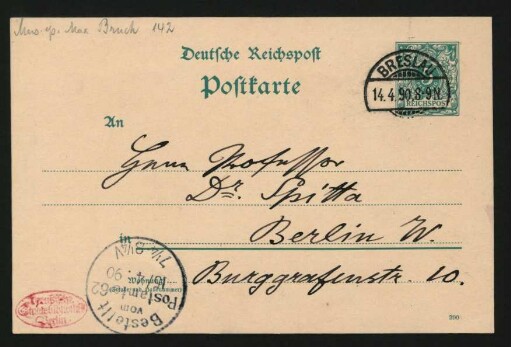 Mus. ep. Max Bruch 142
Deutsche Reichspost
Postkarte
BRESLAU
14.4.90.8-9N.
REICHSPOST
An
Herrn Professor
Dr. Spitta
in Berlin W.
Wohnung
Burggrafenstr. 10.
Bestellt
vom
Postamte 62
90
7¼-8¼V
Berlin
390